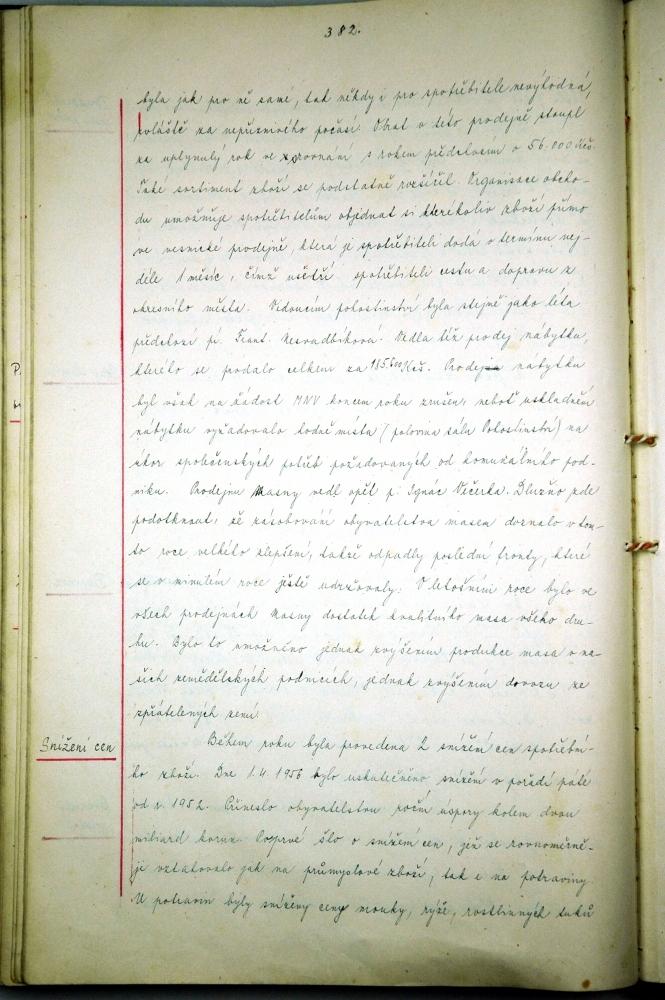 382.
byla jak pro ně samé, tak někdy i pro spotřebitele nevýhodná,
zvláště za nepříznivého počasí. Obrat v této prodejně stoupl
za uplynulý rok ve srovnání s rokem předešlým o 56.000 Kčs.
Také sortiment zboží se podstatně rozšířil. Organisace obcho-
du umožňuje spotřebitelům objednat si kterékoliv zboží přímo
ve vesnické prodejně, která je spotřebiteli dodá v termínu nej-
déle 1 měsíc, čímž ušetří spotřebiteli cestu a dopravu z
okresního města. Vedoucím pohostinství byla stejně jako léta
předešlá pí. Frant. Nesvadbíková. Vedla též prodej nábytku,
kterého se prodalo celkem za 185.500 Kčs. Prodej nábytku
byl však na žádost MNV koncem roku zrušen, neboť uskladnění
nábytku vyžadovalo hodně místa (polovina sálu Pohostinství) na
úkor společenských potřeb požadovaných od komunálního pod-
niku. Prodejnu Masny vedl opět p. Ignác Večerka. Dlužno zde
podotknout, že zásobování obyvatelstva masem doznalo v tom-
to roce velkého zlepšení, takže odpadly poslední fronty, které
se v minulém roce ještě udržovaly. V letošním roce bylo ve
všech prodejnách Masny dostatek kvalitního masa všeho dru-
hu. Bylo to umožněno jednak zvýšením produkce masa v na-
šich zemědělských podnicích, jednak zvýšením dovozu ze
spřátelených zemí.
Snížení cen
Během roku byla provedena 2 snížení cen spotřební-
ho zboží. Dne 1.4.1956 bylo uskutečněno snížení v pořadí páté
od r. 1952. Přineslo obyvatelstvu roční úspory kolem dvou
miliard korun. Poprvé šlo o snížení cen, jež se rovnoměrně-
ji vztahovalo jak na průmyslové zboží, tak i na potraviny.
U potravin byly sníženy ceny mouky, rýže, rostlinných tuků